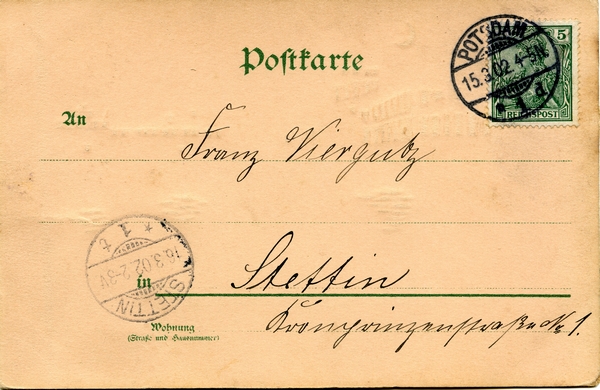 Postkarte
POTSDAM
15.3.02 4-5N
* 1 d.
5
REICHSPOST
An
Franz Viergutz
* 1 t
16.3.02. 2-3V
STETTIN
in Stettin
Wohnung
(Straße und Hausnummer)
Kronprinzenstraße No 1.